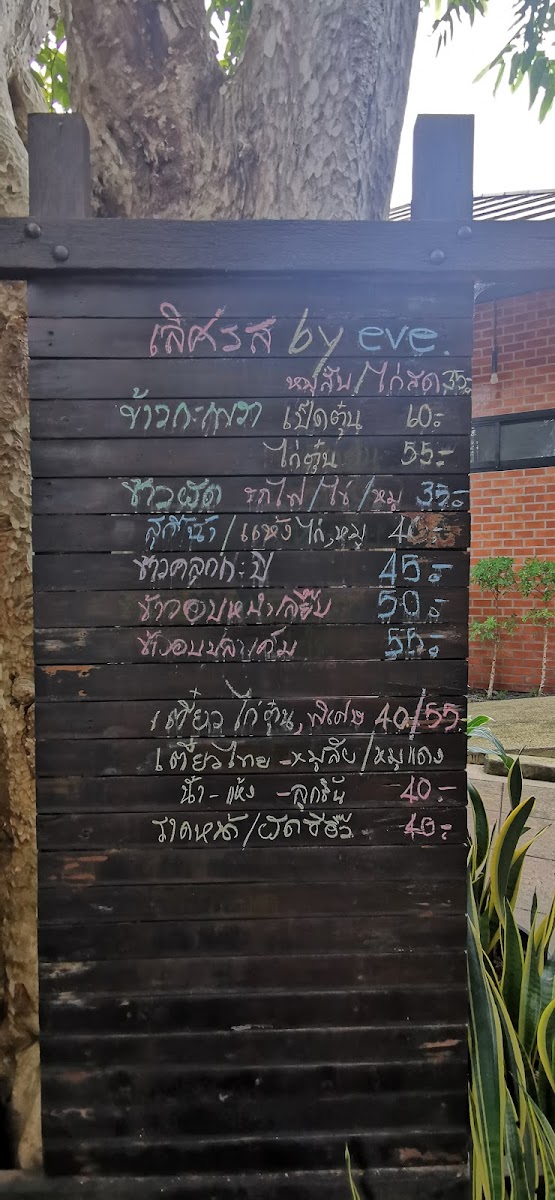 เลิศรส by eve.
หมูสับ/ไก่สด 35.-
ข้าวกะเพรา เป็ดตุ๋น 60.-
ไก่ตุ๋น 55.-
ข้าวผัด รถไฟ/ไข่/หมู 35.-
สุกี้น้ำ/แห้ง ไก่,หมู 40.-
ข้าวคลุกกะปิ 45.-
ข้าวอบหนำเลี๊ยบ 50.-
ข้าวอบปลาเค็ม 55.-
เตี๋ยวไก่ตุ๋น, พิเศษ 40/55.
เตี๋ยวไทย -หมูสับ/หมูแดง
น้ำ-แห้ง -ลูกชิ้น 40.-
ราดหน้า/ผัดซีอิ๊ว 40.-